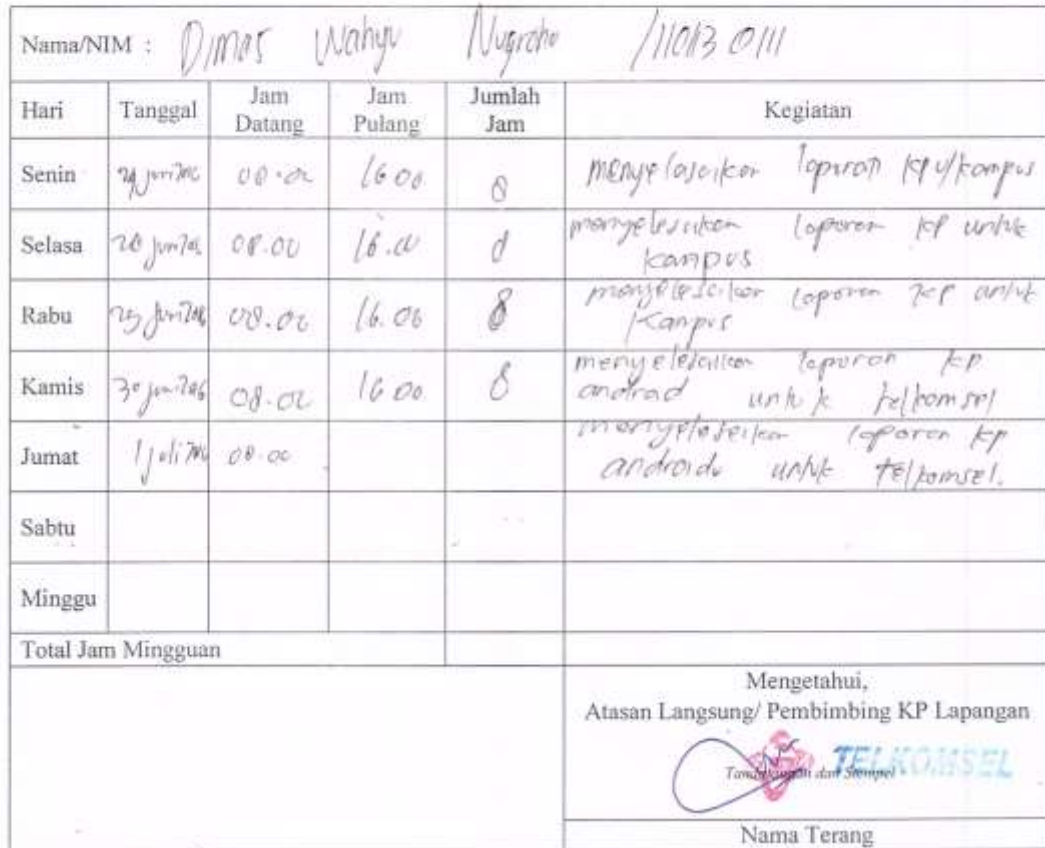 Nama/NIM : Dimas Wahyu Nugroho /11013 0111
Hari Tanggal Jam Datang Jam Pulang Jumlah Jam Kegiatan
Senin 08.00 16 00 8 menyelasaikan laporan kp u/kampus
Selasa 28 juni 08.00 16.00 8 menyelesaikan laporan kp untuk
kampus
Rabu 29 juni 08.00 16.00 8 menyelesaikan laporan kp untuk
kampus
Kamis 30 juni 08.00 16 00 8 menyelesaikan laporan kp
android untuk telkomsel
Jumat 1 juli 08.00 menyelesaikan laporan kp
android untuk telkomsel.
Sabtu
Minggu
Total Jam Mingguan
Mengetahui,
Atasan Langsung/ Pembimbing KP Lapangan
Tanda Tangan dan Stempel TELKOMSEL
Nama Terang